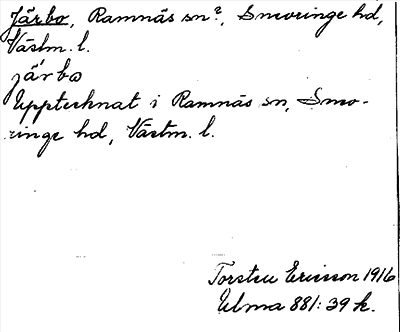 Järbo, Ramnäs sn?, Snevringe hd,
Västm. l.
jä́rbo
Upptecknat i Ramnäs sn, Snev-
ringe hd, Västm. l.
Torsten Ericsson 1916
Ulma 881:39 k.